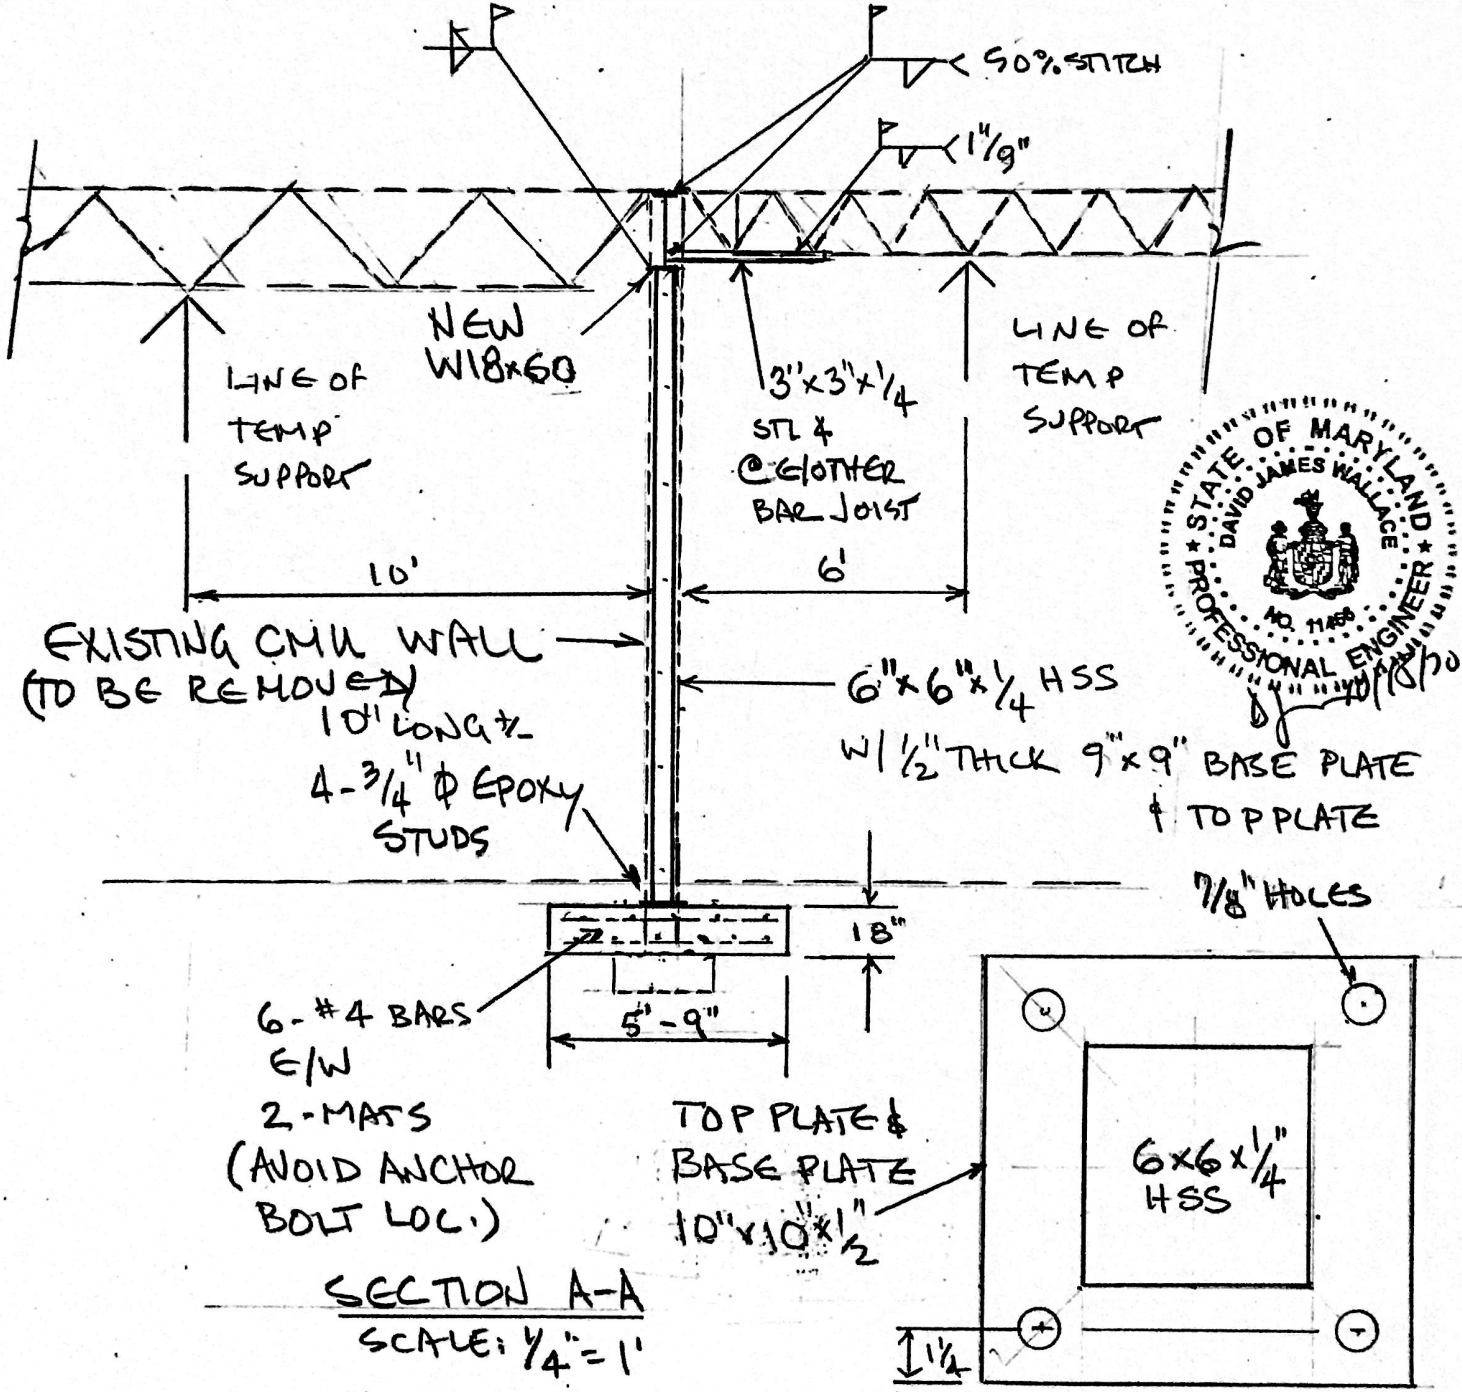 50% STITCH
1"/9"
NEW
W18x60
LINE OF
TEMP
SUPPORT
3"x3"x1/4
STL ∡
@ E/OTHER
BAR JOIST
LINE OF
TEMP
SUPPORT
STATE OF MARYLAND
DAVID JAMES WALLACE
PROFESSIONAL ENGINEER
10'
6'
EXISTING CMU WALL
(TO BE REMOVED)
10" LONG +/-
4-3/4" Φ EPOXY
STUDS
6"x6"x1/4 HSS
W/ 1/2" THICK 9"x9" BASE PLATE
& TOP PLATE
18"
7/8" HOLES
6-#4 BARS
E/W
2-MATS
(AVOID ANCHOR
BOLT LOC.)
5'-9"
TOP PLATE &
BASE PLATE
10"x10"x1/2"
6x6x1/4"
HSS
1 1/4
SECTION A-A
SCALE: 1/4"=1'